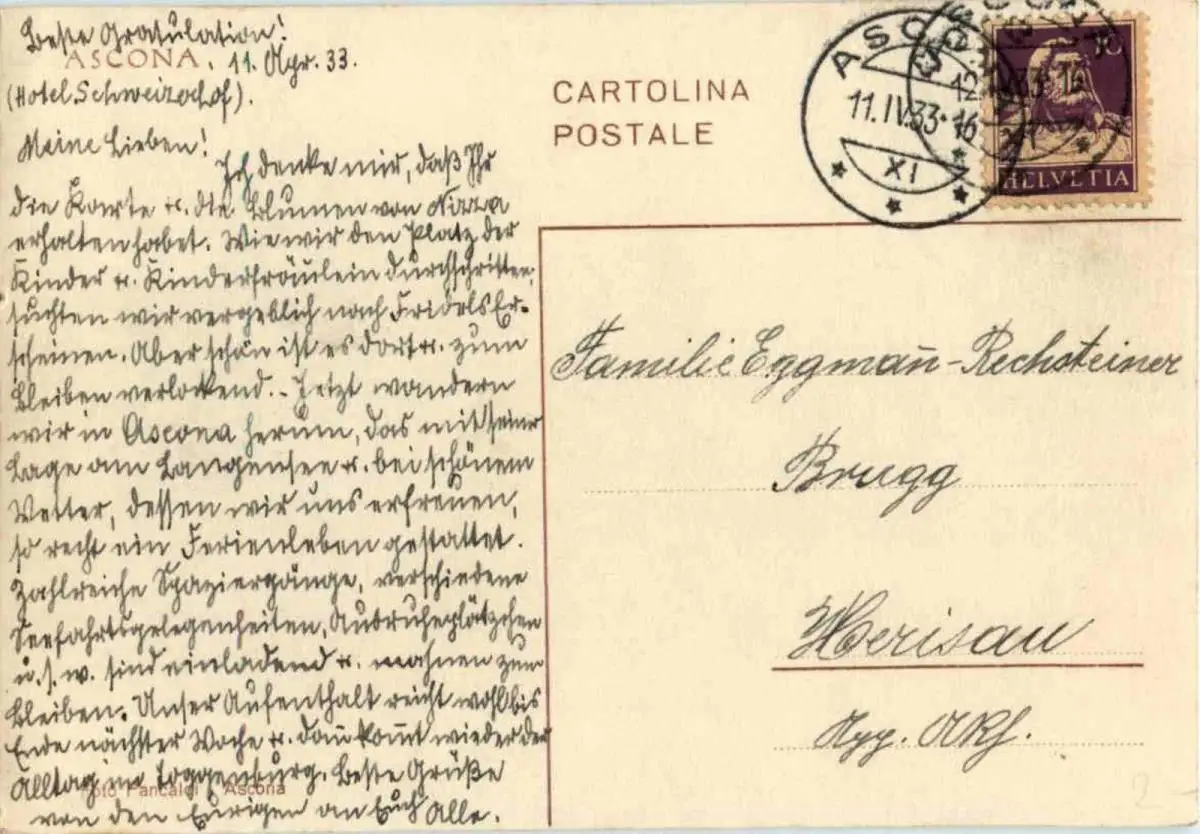 Beste Gratulation!
ASCONA, 11. Apr. 33.
(Hotel Schweizerhof).
Meine Lieben!
Ich denke mir, daß Ihr
die Karte u. die Blumen von Nizza
erhalten habet. Wie wir den Platz der
Kinder u. Kinderfräulein durchschritten,
suchten wir vergeblich nach Fridels Er-
scheinen. Aber schön ist es dort u. zum
Bleiben verlockend. - Jetzt wandern
wir in Ascona herum, das mit seiner
Lage am Langensee u. bei schönem
Wetter, dessen wir uns erfreuen,
so recht ein Ferienleben gestattet.
Zahlreiche Spaziergänge, verschiedene
Seefahrtsgelegenheiten, Ausruheplätzchen
u. s. w. sind einladend u. mahnen zum
Bleiben. Unser Aufenthalt reicht wohl bis
Ende nächster Woche u. dañ kom̄t wieder der
Alltag im Toggenburg. Beste Grüße
von den Eurigen an Euch Alle.
Foto Pancaldi Ascona
CARTOLINA
POSTALE
ASCONA
11.IV.33-16
XI
12.IV.33-16
10
HELVETIA
Familie Eggmañ-Rechsteiner
Brugg
Herisau
App. ARh.
2